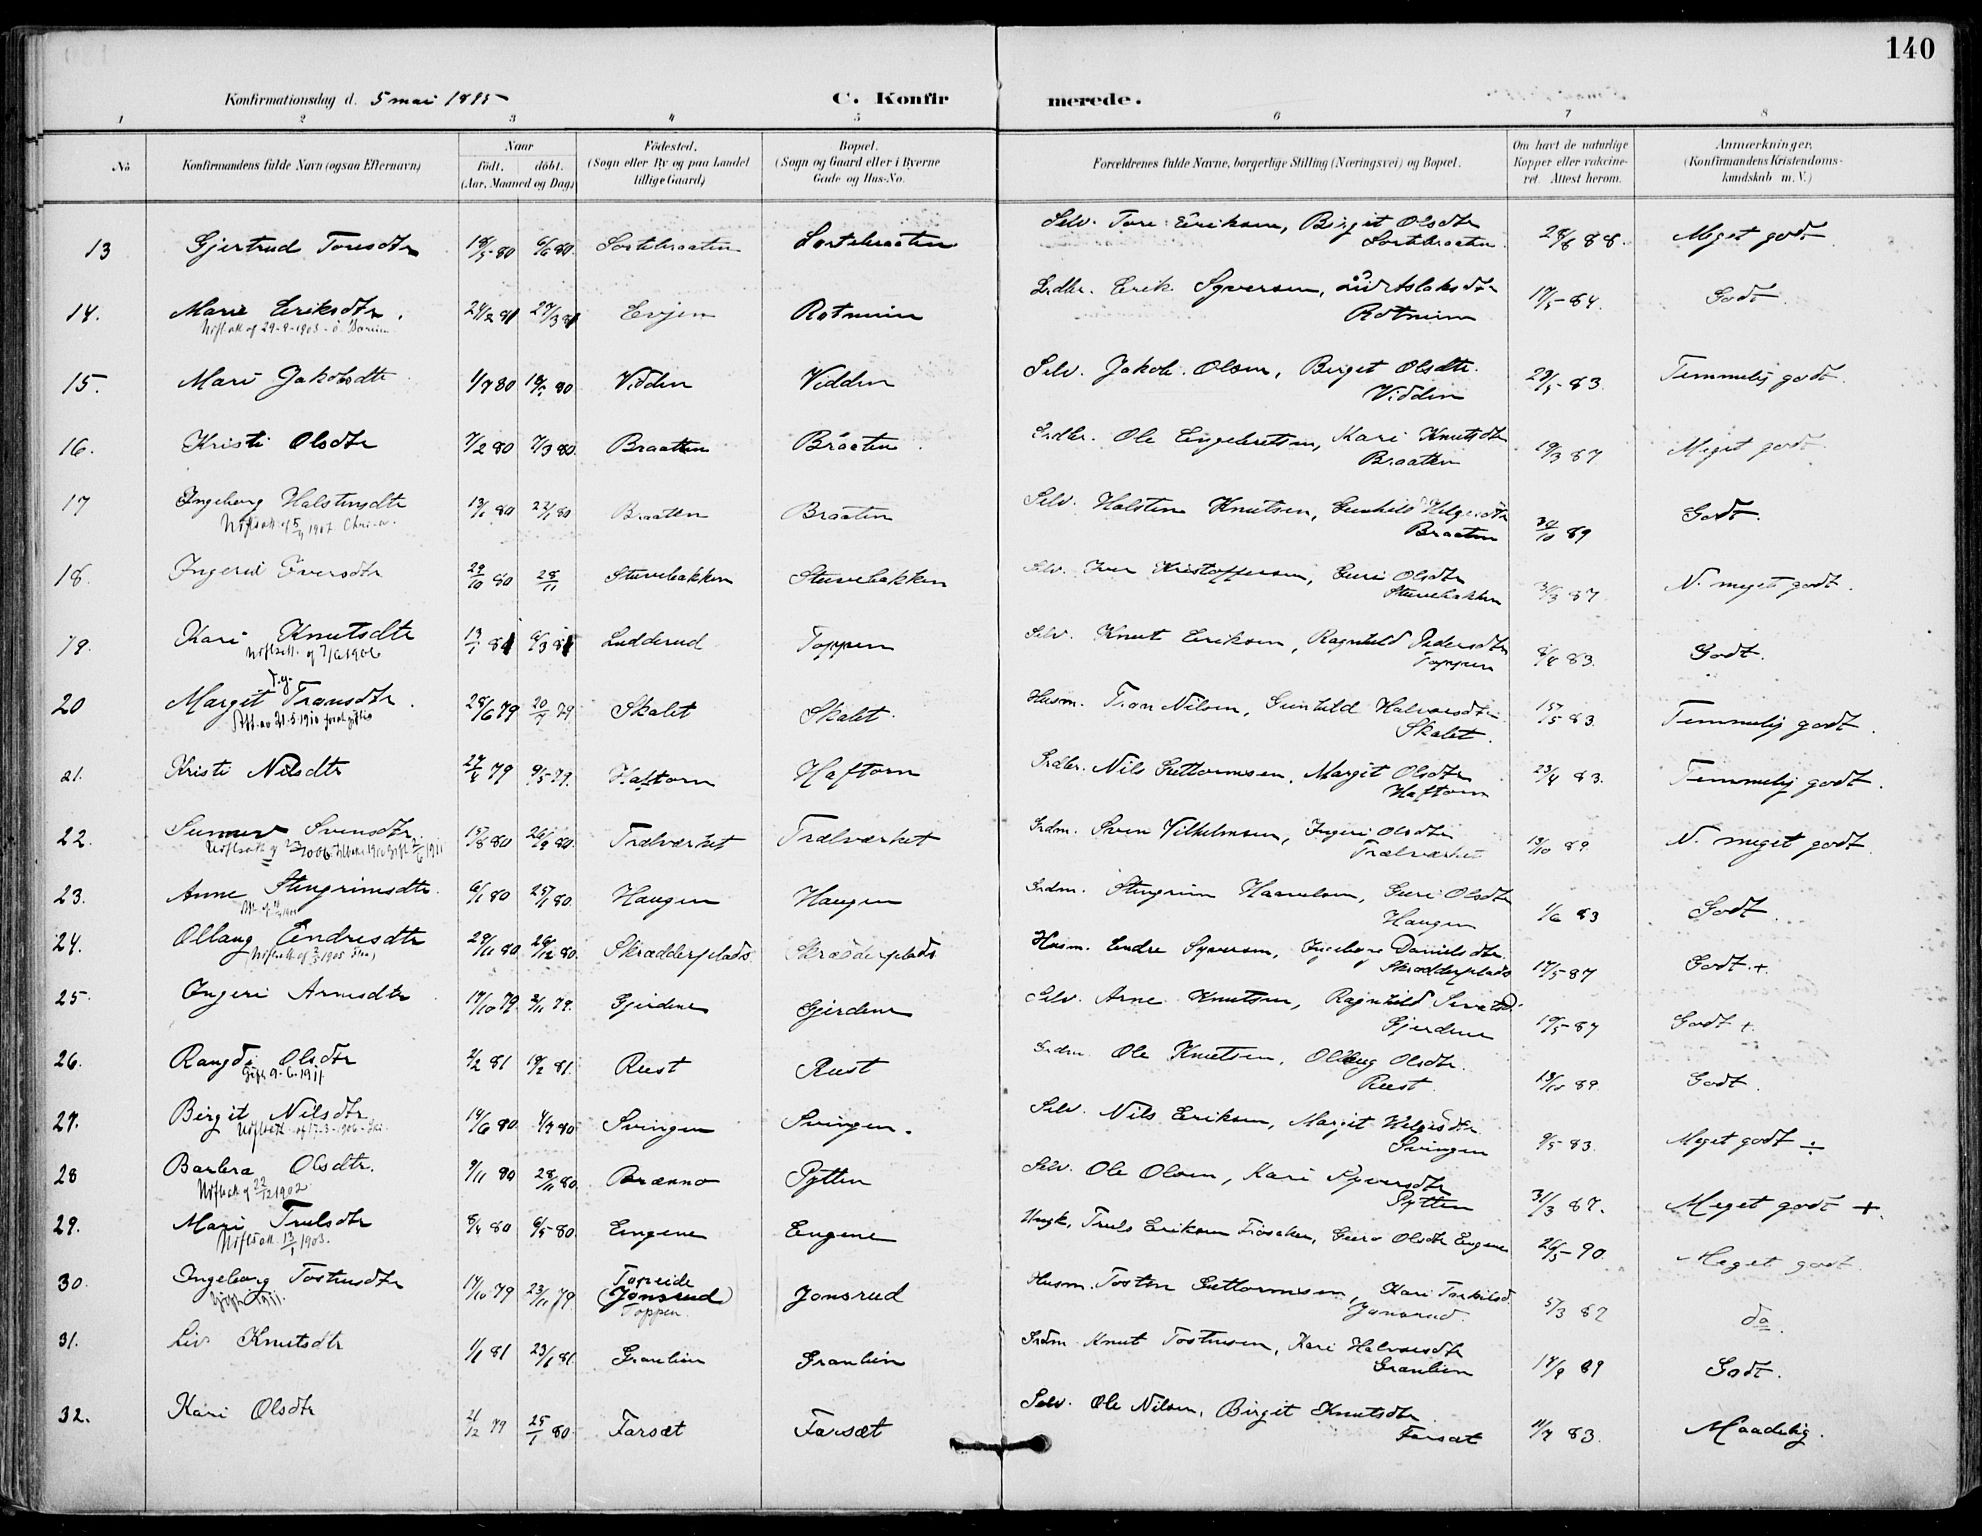 140
Konfirmationsdag d. 5 mai 1895
C. Konfirmerede.
1 2 3 4 5 6 7 8
No. Konfirmandens fulde Navn (ogsaa Efternavn) Naar födt. döbt. (Aar, Maaned og Dag) Födested. (Sogn eller By og paa Landet tillige Gaard) Bopæl. (Sogn og Gaard eller i Byerne Gade og Hus-No. Forældrenes fulde Navne, borgerlige Stilling (Næringsvei) og Bopæl. Om havt de naturlige Kopper eller vakcineret. Attest herom. Anmærkninger, (Konfirmandens Kristendomskundskab m. V.)
13 Gjertrud Toresdtr 18/5 80 6/6 80. Sortebraaten Sortebraaten Selv. Tore Eriksen, Birgit Olsdtr Sortebraaten. 28/6 88. Meget godt
14. Mari Eriksdtr. 24/2 81 27/3 81 Evjen Rotneim Erik Syversen, Aslaksdtr Rotneim 17/5-84. Godt.
Utflatt. af 29-9-1903
15. Mari Jakobsdtr 1/7 80 80 Vidden Vidden Selv. Jakob Olsen, Birget Olsdtr. Vidden 29/5-83. Temmelig godt.
16. Kristi Olsdtr 7/2 80 7/3 80. Braaten Braaten Ole Engebretsen, Kari Knutsdtr Braaten 19/3 87 Meget godt
17 Ingeborg Halstensdtr 13/1 80 22/1 80 Braaten Braaten Selv. Halsten Knutsen, Gunhild Helgesdtr Braaten 30/10 89 Godt.
1907 Chri-a.
18. Ingerid Iversdtr 29/10 80 28/11 Stuvebakken Stuvebakken Selv. Iver Kristoffersen, Guri Olsdtr Stuvebakken 31/3 87. N. meget godt.
19. Kari Knutsdtr 13/1 81 6/3 81 Ludderud Toppen Selv. Knut Eriksen, Ragnhild Pedersdtr Toppen 8/4 83. Godt.
Utflatt. af 7/6 1906
20 Margit Tronsdtr. 28/6 79 20/7 79 Skalet Skalet. Husm. Tron Nilsen, Gunhild Halvorsdtr Skalet. 15/5 83. Temmelig godt.
Att. av 31-5-1910
21. Kristi Nilsdtr 27/4 79 9/5-79. Haftorn Haftorn Nils Guttormsen, Margit Olsdtr Haftorn 23/4 83. Temmelig godt.
22. Sunnev Svensdtr. 15/8 80 26/9 80. Trælværket Trælværket Grdm. Sven Vilhelmsen, Ingeri Olsdtr Trælværket 13/10 89 N. meget godt
23. Anne Stengrimsdtr. 6/1 80 25/1 80. Haugen Haugen Grdm. Stengrim Haavelsen, Guri Olsdtr Haugen 1/6 83 Godt.
24. Ollaug Endresdtr 29/11 80 26/12 80. Skrædderplads Skrædderplads Husm. Endre Syversen, Ingeborg Danielsdtr. Skrædderplads 17/5-87 Godt. +
25. Ingeri Arnesdtr 17/10 79. 2/11 79. Gjerdene Gjerdene Selv. Arne Knutsen, Ragnhild Gjerdene 19/5-87 Godt +
26. Rangdi Olsdtr 2/2 81 19/2 81. Rust Rust Grdm. Ole Knutsen, Ollaug Olsdtr. Rust. 13/10 89. Godt.
Gift 9-6-1911
27. Birgit Nilsdtr. 14/6 80 4/7 80 Svingen Svingen. Selv. Nils Eriksen, Margit Helgesdtr Svingen 9/5-83. Meget godt ÷
Utflatt. af 17-3-1906
28 Barbra Olsdtr. 9/11 80 28/11 80. Brænno Pytten Selv. Ole Olsen, Kari Syversdtr Pytten 31/3 87. Meget godt +.
Utflatt af 22/12 1902
29. Mari Trulsdtr 8/4 80 6/5-80 Engene Engene Truls Eriksen, Guro Olsdtr Engene 26/5-90. Meget godt.
Utflatt. 13/1 1903.
30. Ingeborg Tostensdtr 17/10 79 23/11 79 Topeide (Jonsrud) Toppen Jonsrud Husm. Tosten Guttormsen, Kari Torkilsd. Jonsrud. 5/3 82 do.
31. Liv Knutsdtr 1/1 81 23/1 81. Granlien Granlien Grdm. Knut Tostensen, Kari Halvorsdtr Granlien 17/9 89 Godt.
32. Kari Olsdtr 21/12 79 25/1 80. Farsæt Farsæt Selv. Ole Nilsen, Birgit Knutsdtr. Farsæt 11/7 83. Maadelig.